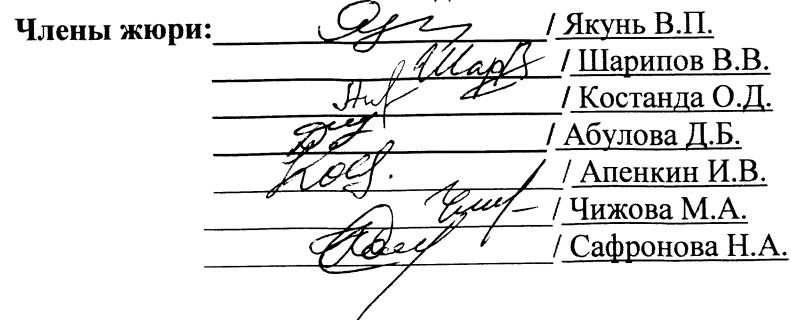 Члены жюри: / Якунь В.П.
/ Шарипов В.В.
/ Костанда О.Д.
/ Абулова Д.Б.
/ Апенкин И.В.
/ Чижова М.А.
/ Сафронова Н.А.